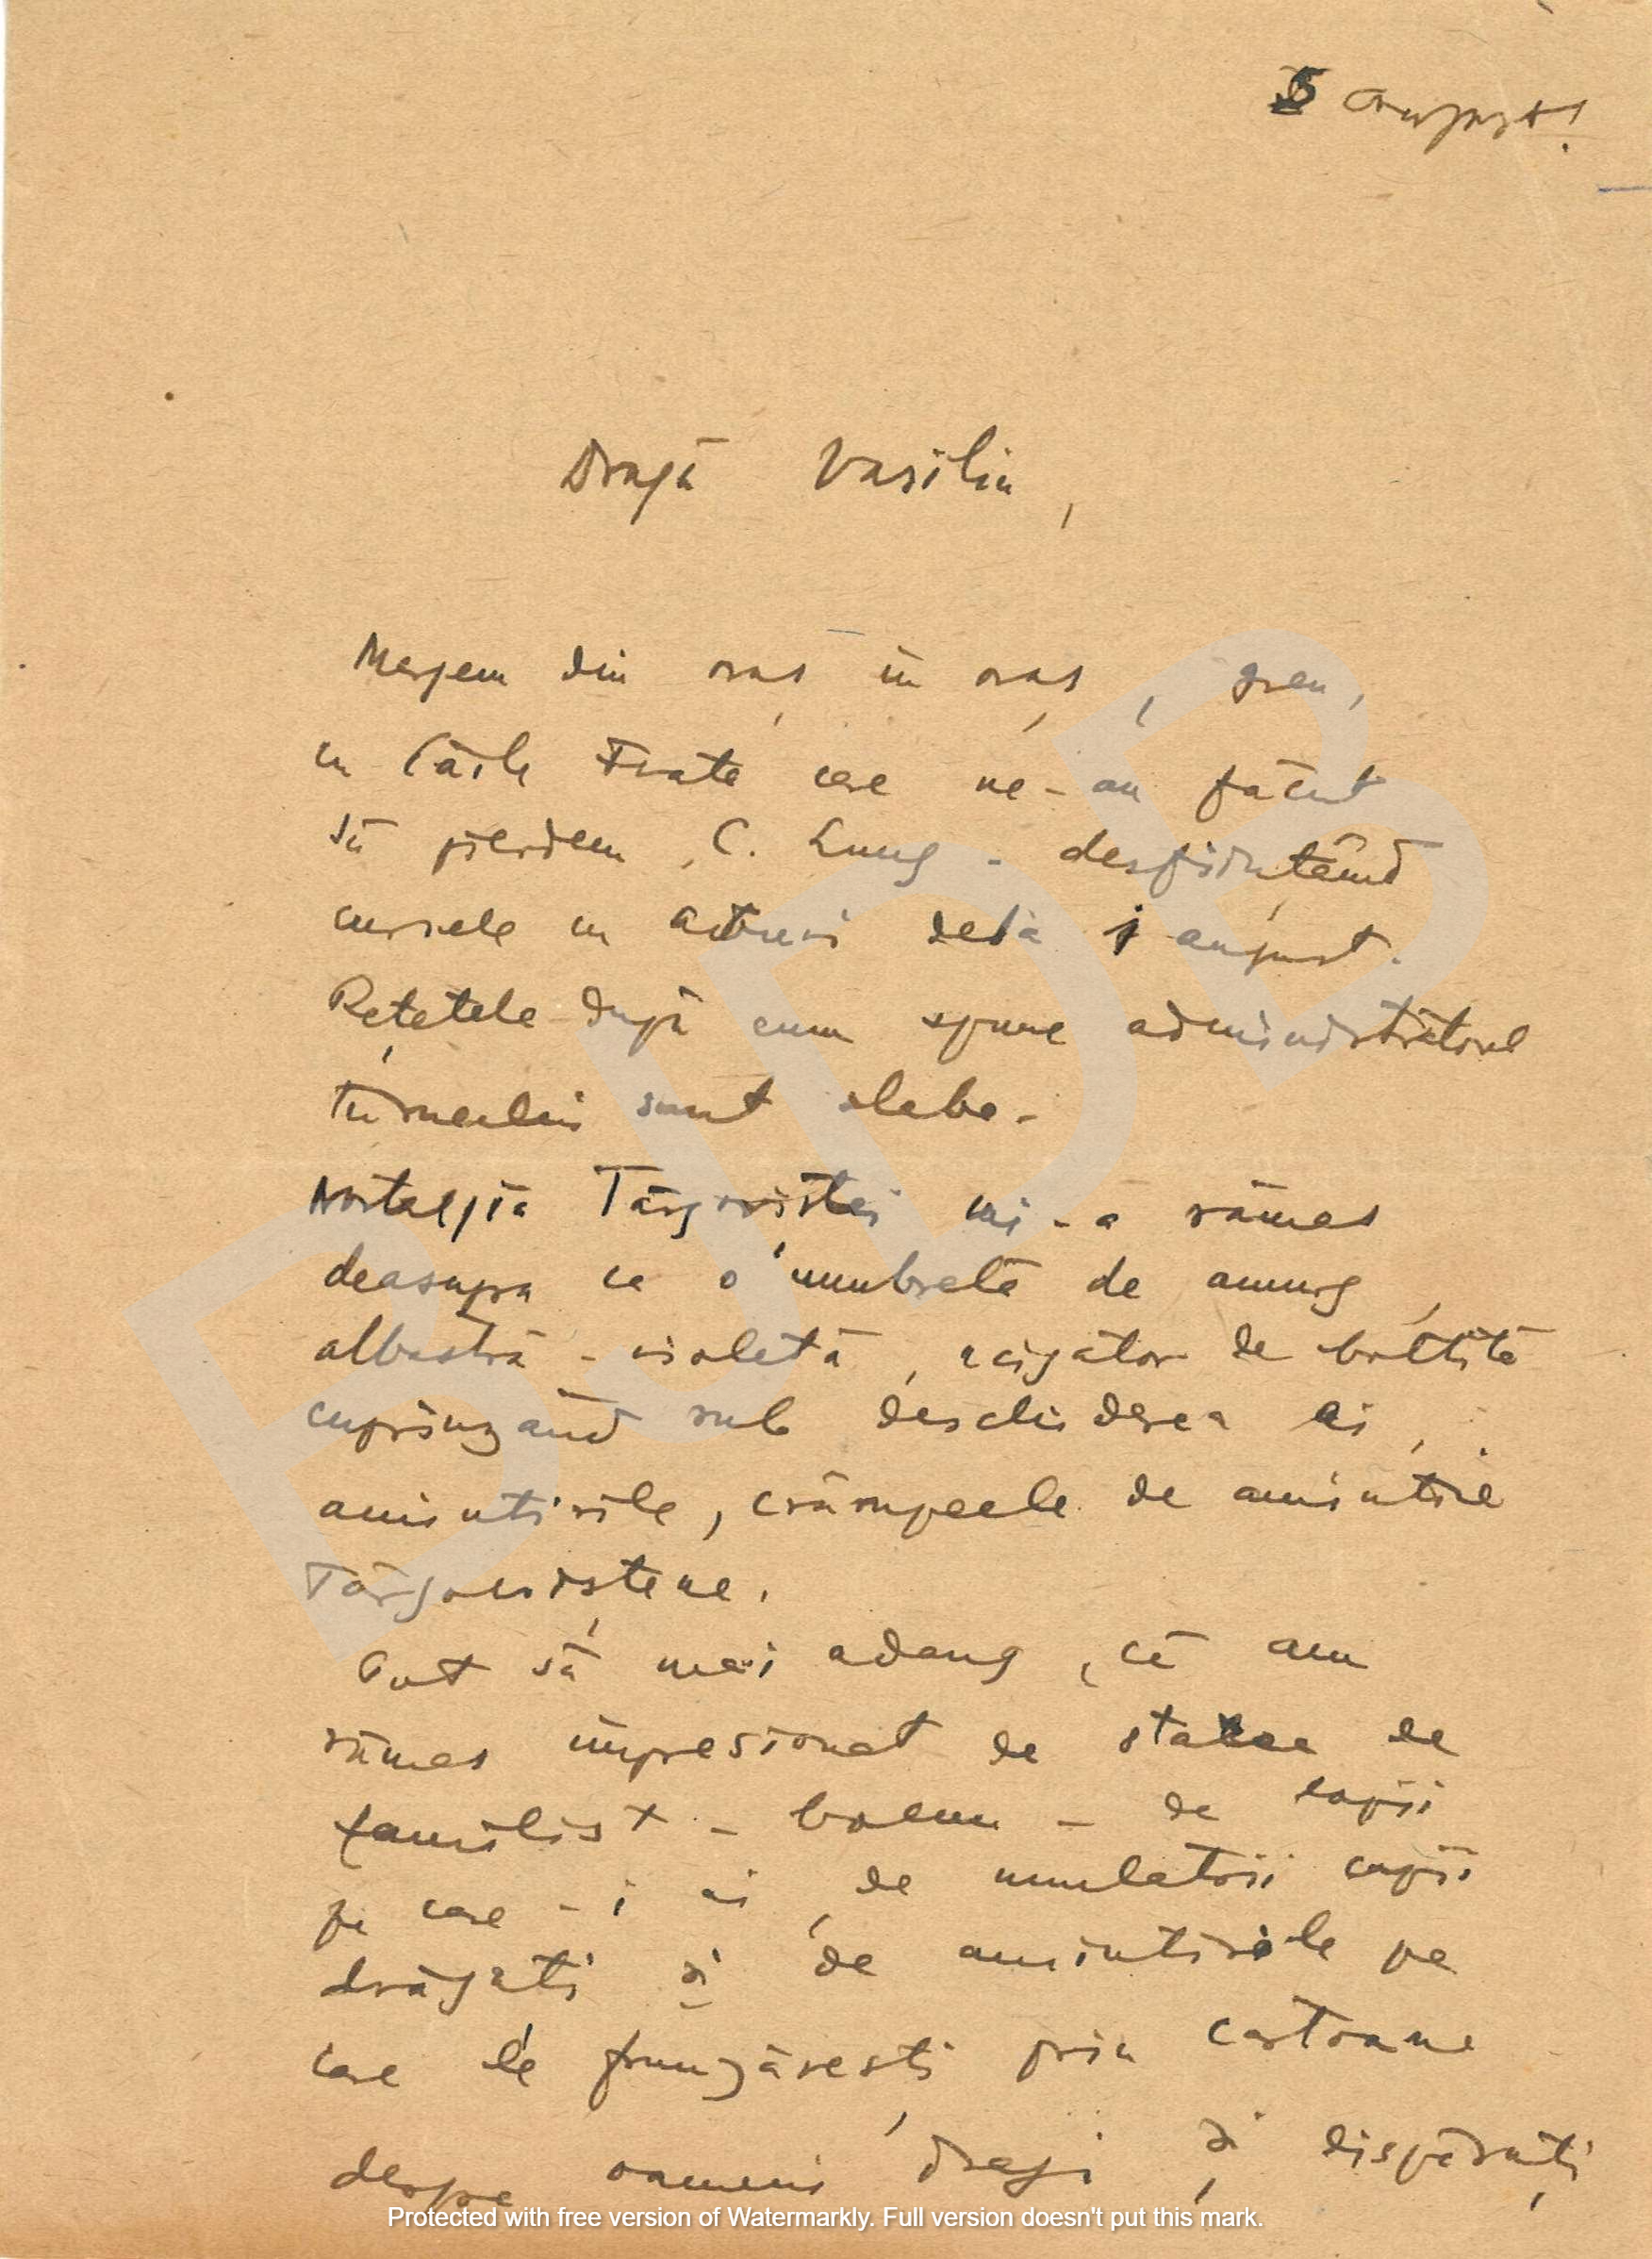 5 August!
Dragă Vasiliu,
Mergem din oraș în oraș, greu,
cu Căile Ferate care ne-au făcut
să pierdem C. Lung - desființând
cursele cu aburi dela 1 august.
Rețetele după cum spune administratorul
turneului sunt slabe.
Nostalgia Târgoviștei mi-a rămas
deasupra ca o umbrelă de amurg,
albastră-violetă, de
cuprinzând sub deschiderea ei,
amintirile, crâmpeele de amintire
Târgoviștene.
Pot să mai adaug, că am
rămas impresionat de starea de
familist - boem - de copii
pe care-i ai, de copii
drăguți și de amintirile pe
care le frunzărești prin cartoane
despre oameni dragi și dispăruți
BJDB
Protected with free version of Watermarkly. Full version doesn't put this mark.